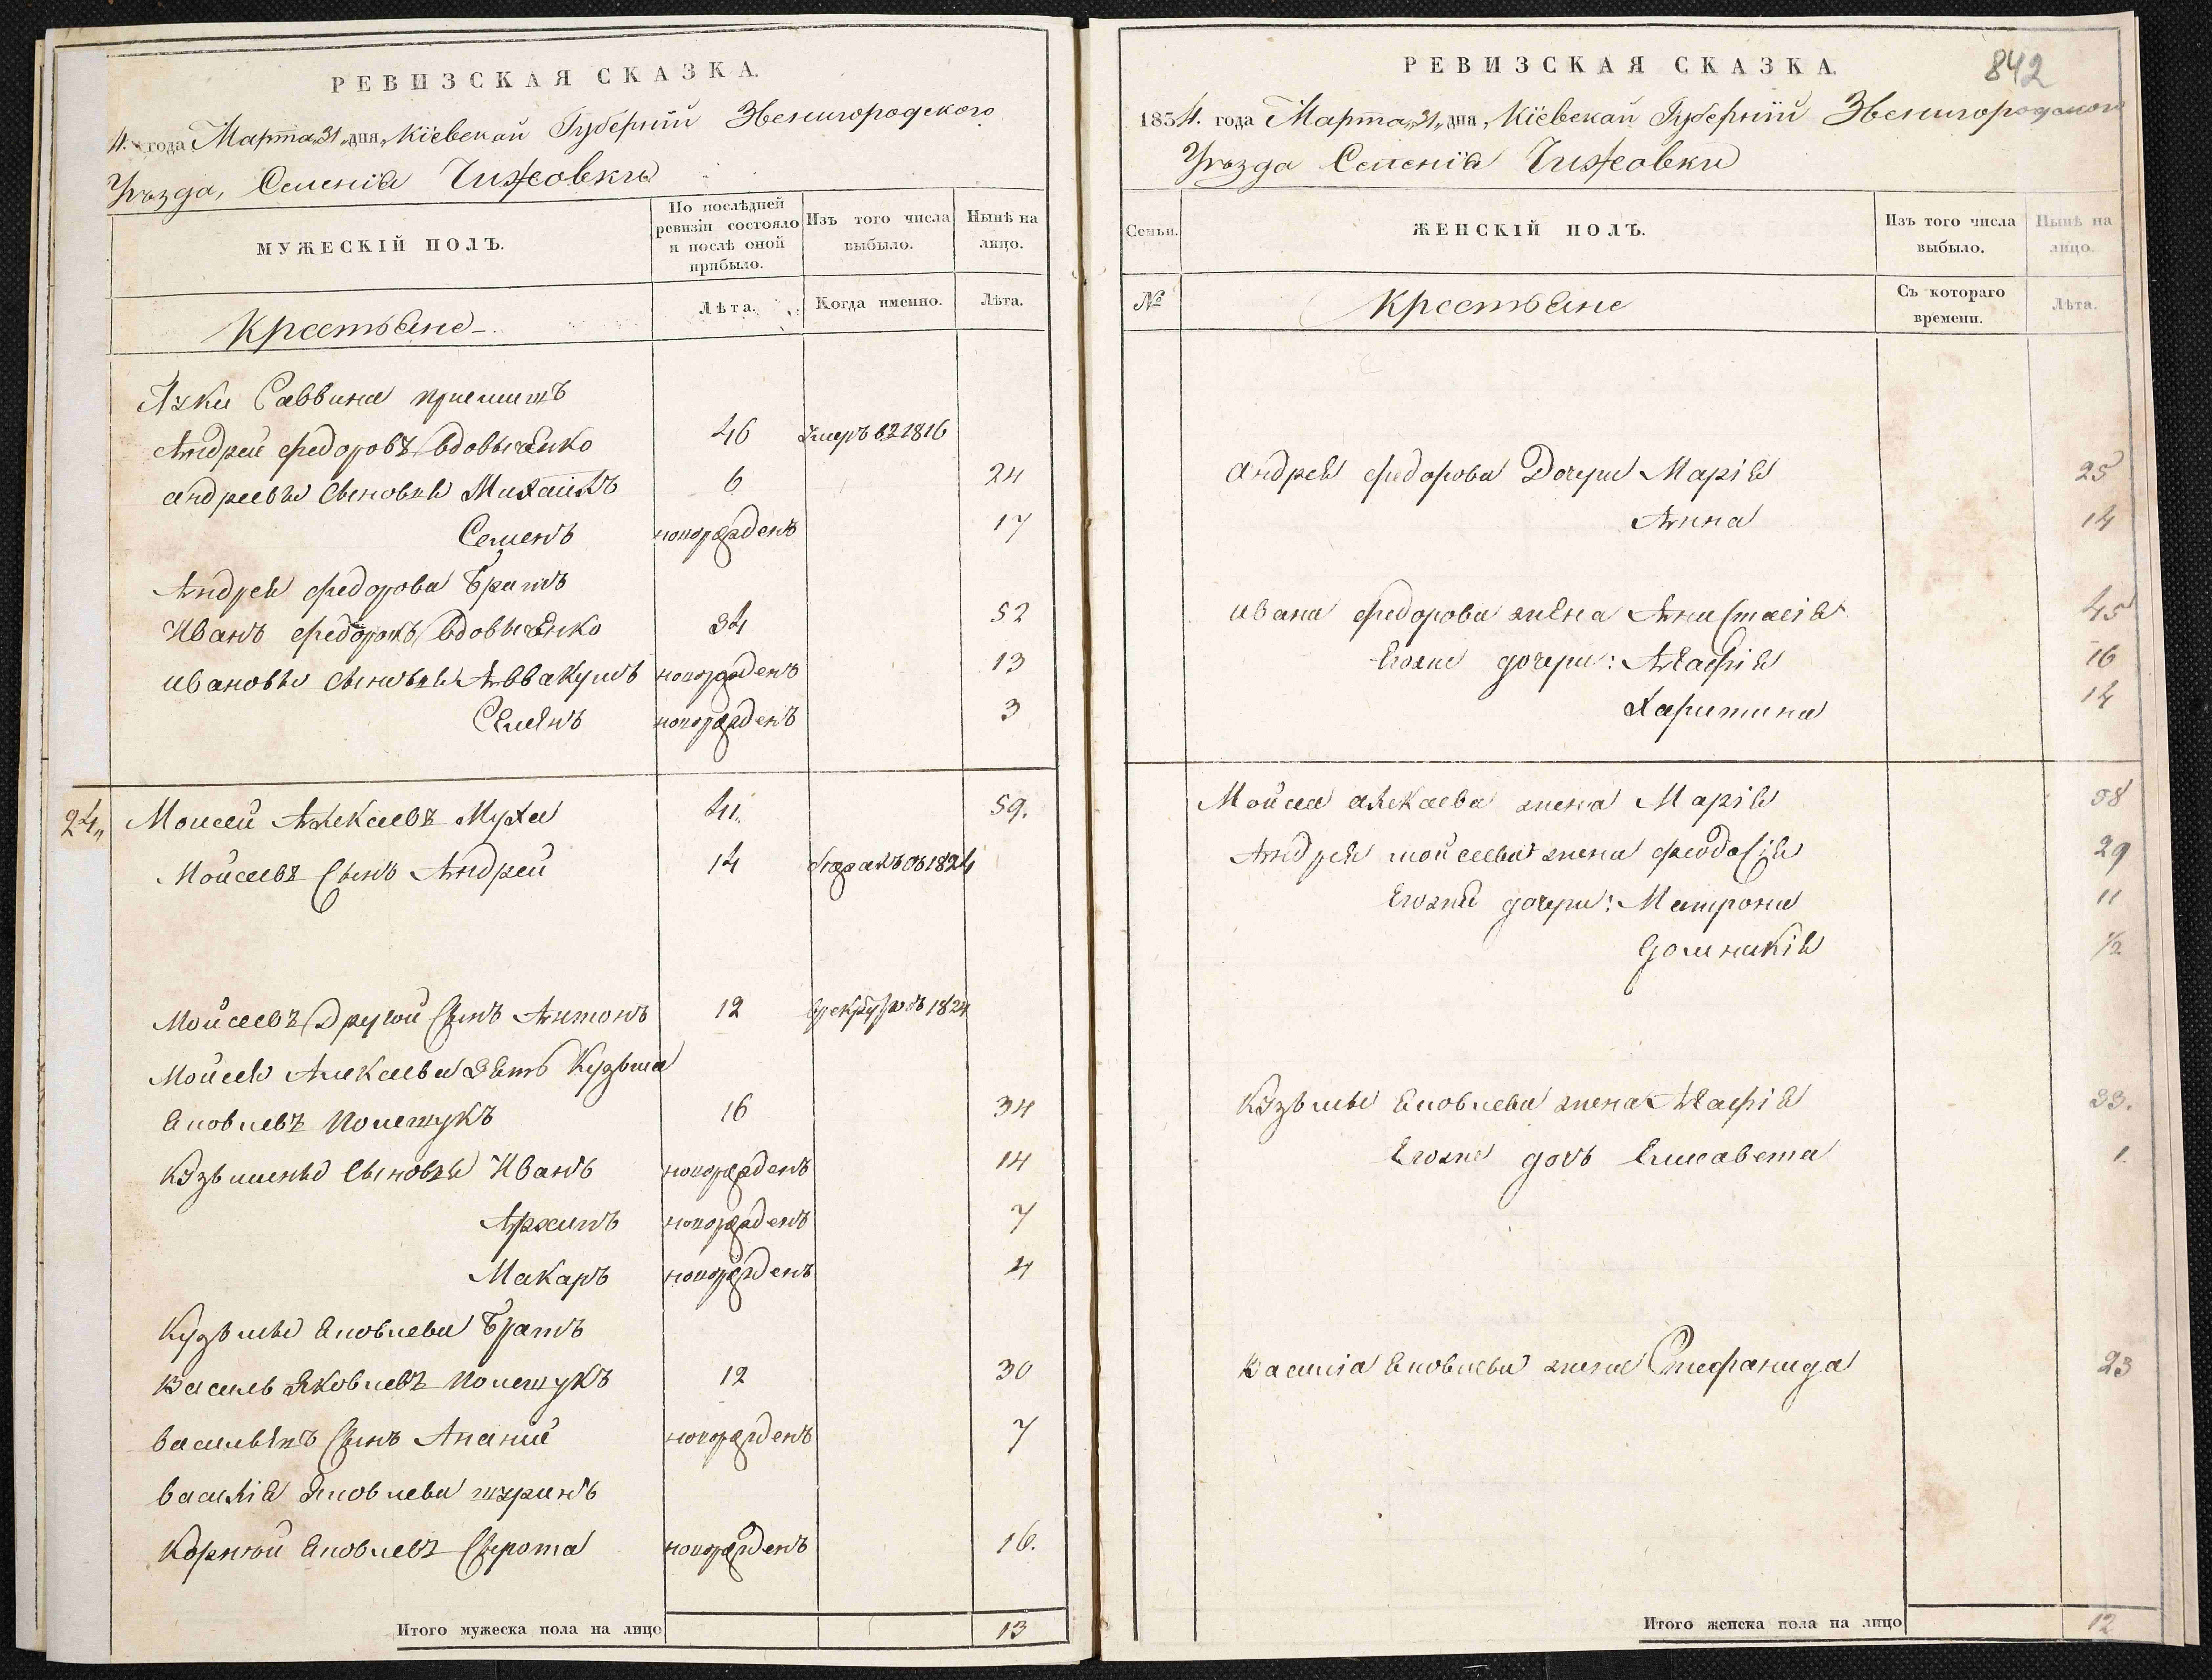 РЕВИЗСКАЯ СКАЗКА.
4. года Марта „31„ дня, Кіевской Губерніи Звенигородского
Уѣзда, Селенія Чижовки
МУЖЕСКІЙ ПОЛЪ.
По послѣдней ревизіи состояло и послѣ оной прибыло.
Изъ того числа выбыло.
Нынѣ на лицо.
Лѣта.
Когда именно.
Лѣта.
Крестьяне
Саввина приемышъ
Андрей Федоровъ Вдовыченко 46 Умеръ въ 1816
Андреевы Сыновья Михаилъ 6 24
Семенъ новорожденъ 17
Андрея Федорова Братъ
Иванъ Федоровъ Вдовыченко 34 52
Ивановы Сыновья Аввакумъ новорожденъ 13
Семенъ новорожденъ 3
24„ Моисей Алексеевъ Муха 41. 59.
Мойсеевъ Сынъ Андрей 14 1824
Мойсеевъ Другой Сынъ Антонъ 12 1824
Мойсея Алексеева Зять Кузьма
Яковлевъ Полещукъ 16 34
Кузьмины Сыновья Иванъ новорожденъ 14
Архипъ новорожденъ 7
Макаръ новорожденъ 4
Кузьмы Яковлева Братъ
Василь Яковлевъ Полещукъ 12 30
Васильевъ Сынъ Ананій новорожденъ 7
Василія Яковлева шуринъ
Корнюй Яковлевъ Сырота новорожденъ 16.
Итого мужеска пола на лицо 13
842
РЕВИЗСКАЯ СКАЗКА.
1834. года Марта „31„ дня, Кіевской Губерніи Звенигородского
Уѣзда Селенія Чижовки
Семьи.
ЖЕНСКІЙ ПОЛЪ.
Изъ того числа выбыло.
Нынѣ на лицо.
№
Крестьяне
Съ котораго времени.
Лѣта.
Андрея Федорова Дочери Марія 25
Анна 14
Ивана Федорова жена Анастасія 45
Егоже дочери: Агафія 16
Харитина 14
Мойсея Алексеева жена Марія 58
Андрея Мойсеева жена Феодосія 29
Егоже дочери: Матрона 11
Домникія 1/2
Кузьмы Яковлева жена Агафія 33.
Егоже дочь Елисавета 1.
Василія Яковлева жена Стефанида 23
Итого женска пола на лицо 12